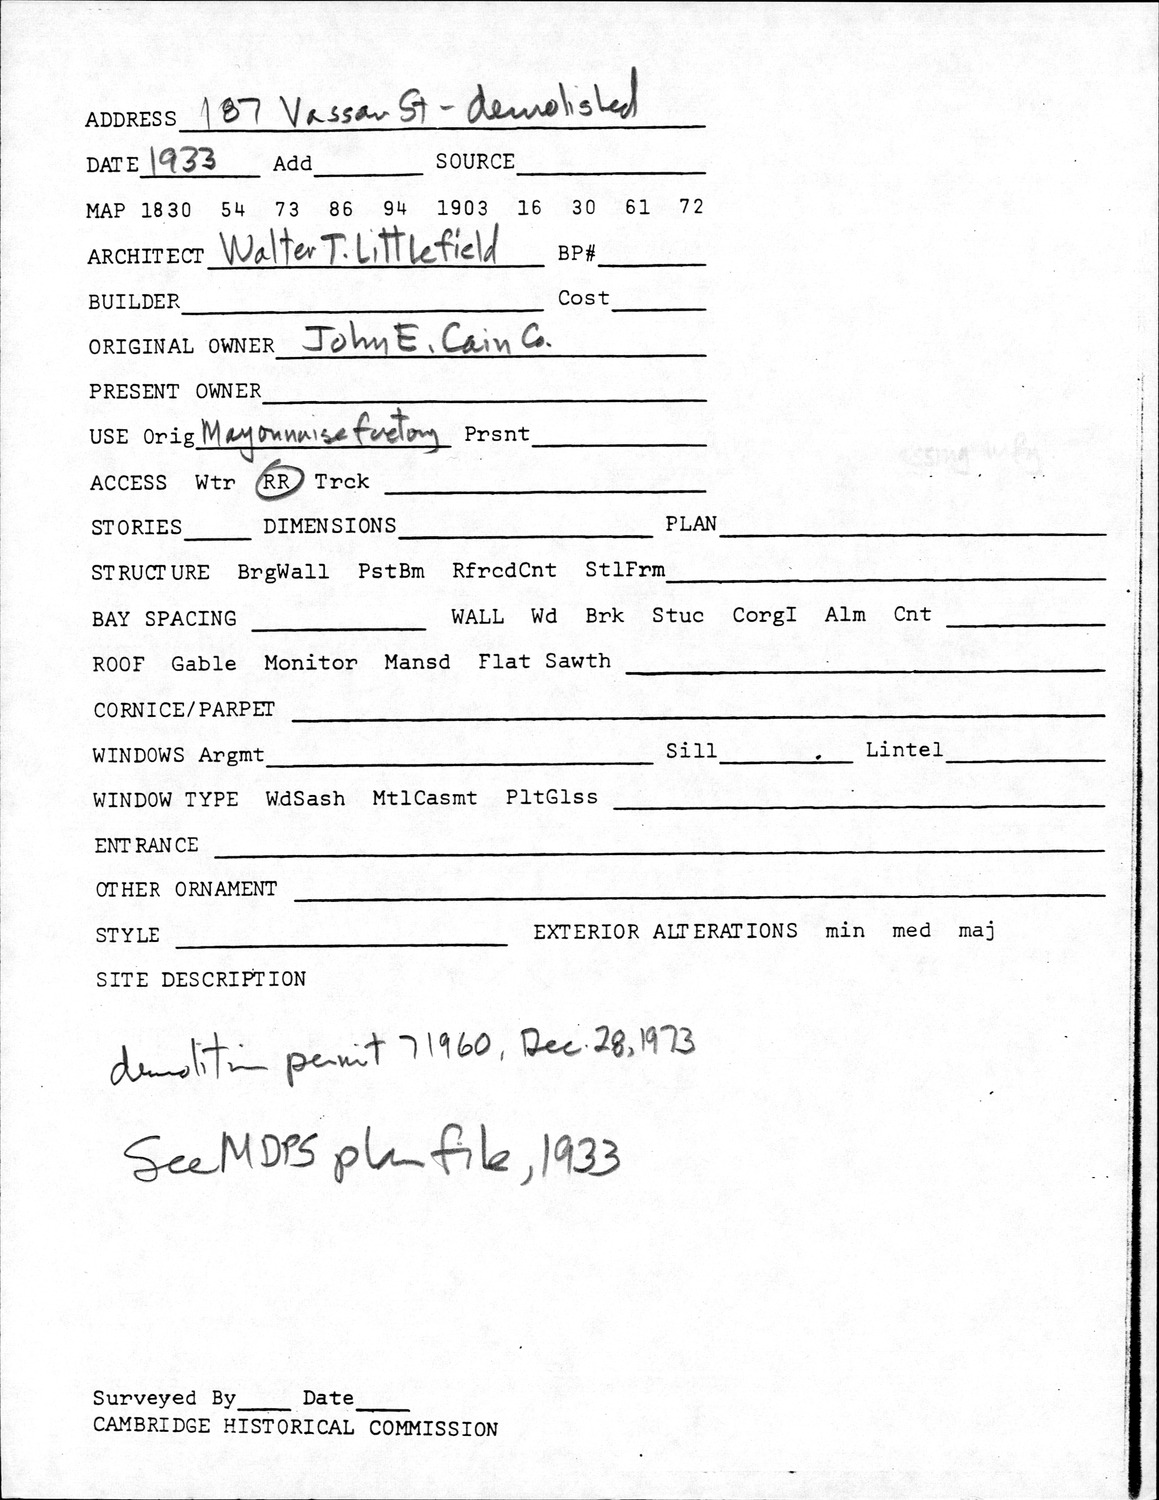 ADDRESS 187 Vassar St - demolished
DATE 1933 Add SOURCE
MAP 1830 54 73 86 94 1903 16 30 61 72
ARCHITECT Walter T. Littlefield BP#
BUILDER Cost
ORIGINAL OWNER John E. Cain Co.
PRESENT OWNER
USE Orig Mayonnaise factory Prsnt
ACCESS Wtr RR Trck
STORIES DIMENSIONS PLAN
STRUCTURE BrgWall PstBm RfrcdCnt StlFrm
BAY SPACING WALL Wd Brk Stuc CorgI Alm Cnt
ROOF Gable Monitor Mansd Flat Sawth
CORNICE/PARPET
WINDOWS Argmt Sill Lintel
WINDOW TYPE WdSash MtlCasmt PltGlss
ENTRANCE
OTHER ORNAMENT
STYLE EXTERIOR ALTERATIONS min med maj
SITE DESCRIPTION
demolition permit 71960, Dec. 28, 1973
See MDPS plan file, 1933
Surveyed By Date
CAMBRIDGE HISTORICAL COMMISSION